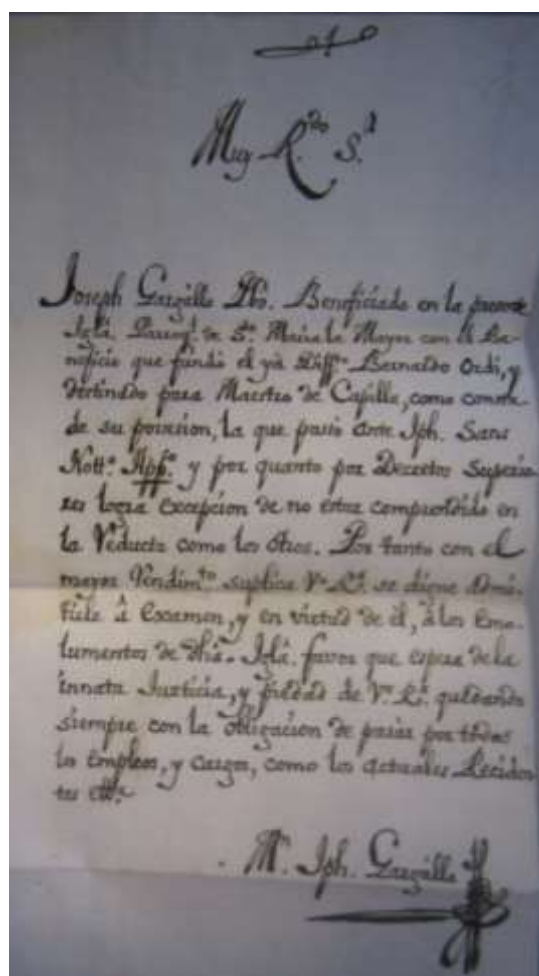 Muy R.do S.r
Joseph Gargallo Pbo. Beneficiado en la presente
Iglã. Parroql. de S.ta Maria la Mayor con el Be-
neficio que fundò el yà Diff.to Bernardo Ordi, y
destinado para Maestro de Capilla, como consta
de su posesion, la que pasò ante Jph. Sans
Nott.o App.o y por quanto por Decretos Superio-
res logra excepcion de no estar comprendido en
la Reducta como los otros. Por tanto con el
mayor Rendim.to suplica V.a R.a se digne admi-
tirle à examen, y en virtud de èl, à los emo-
lumentos de dha. Iglã. favor que espera de la
innata Justicia, y piedad de V.a R.a quedando
siempre con la obligacion de pasar por todos
los empleos, y cargos, como los actuales Residen-
tes ett.a
M.n Jph. Gargallo